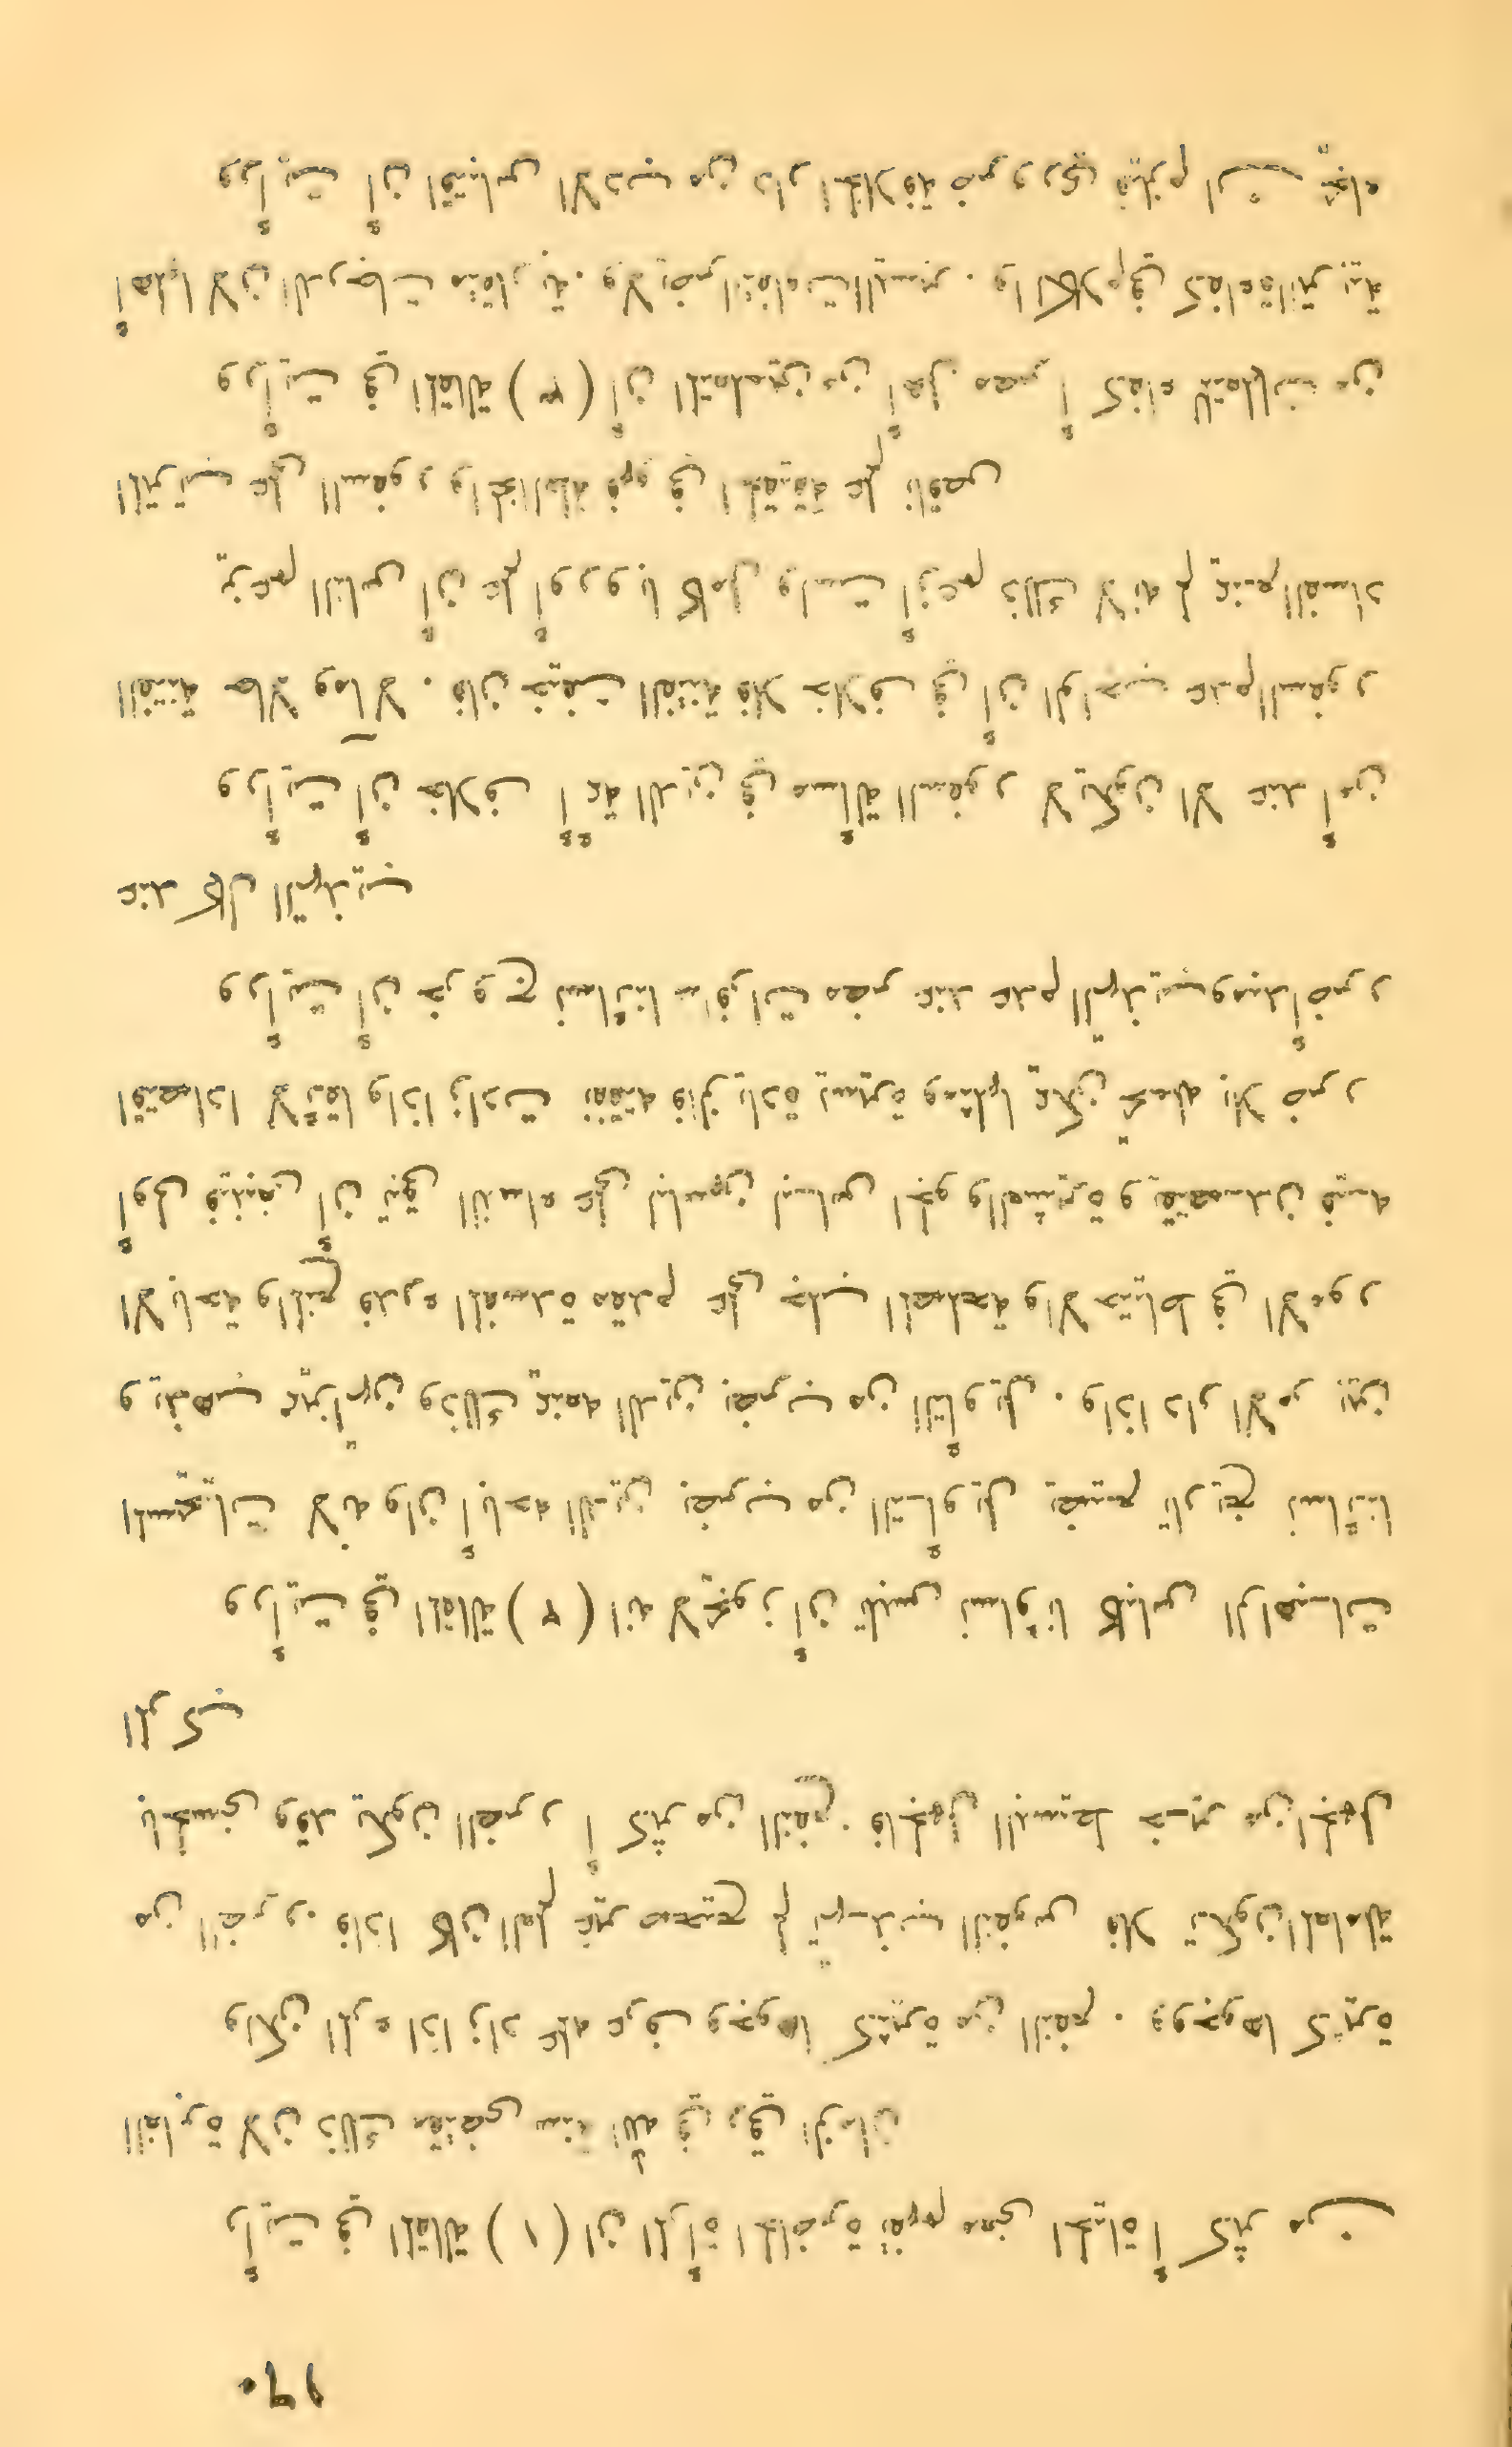 ١٩٠
رأيت في المقالة (١) ان المرأة الحاضرة تفهم معنى الحياة أكثر من
الغابرة لان ذلك مقتضى سنة الله في رقي الزمان
ولكن المرء اذا زاد علمه عرف وجوها كثيرة من النفع . ووجوها كثيرة
من الضرر . فاذا كان العلم غير صحيح لم تهذب النفوس فلا تكون المعاملة
بالحسنى وقد يكون الضرر أكثر من النفع . فالجهل البسيط خير من الجهل
المركب
ورأيت في المقالة (٢) انه لا يجوز أن تلبس نساؤنا كلباس الراهبات
المسيحيات لانه وان أباحه الدين بضرب من التأويل يضيع تاريخ نسائنا
ويذهب بمزاياهن وذلك يمنعه الدين بضرب من التأويل . واذا دار الامر بين
الاباحة والمنع فدرء المفسدة مقدم على جلب المصلحة والاحتياط في الامور
أولى فينبغي أن تبقى النساء على لباسهن لباس الجو والعشيرة ويقتصدن فيه
اقتصادا لائقا واذا زادت نفقته فالزيادة يسيرة ومثلها يمكن تحمله بلا ضرر
ورأيت أن خروج نسائنا سافرات مضر عند عدم التهذيب ومبدأ ضرر
عند كمال التهذيب
ورأيت أن خلاف أئمة الدين في مسألة السفور لا يكون الا عند أمن
الفتنة حالا ومآلا . فان خيفت الفتنة فلا خلاف في أن الواجب عدم السفور
يزعم الناس أن علم أوروبا كامل ولست أزعم ذلك لانه لم يمنع الفساد
المترتب على السفور والمخالطة فهو في الحقيقة علم ناقص
ورأيت في المقالة (٣) أن المتعلمين من أهل مصر أكفاء للمتعلمات من
أهلها لان الدرجات متقاربة . ولا يضر التفاوت اليسير . والكلام في كفاءة التربية
ورأيت أن اقتباس الادب من دار الخلافة ضروري فيلزم